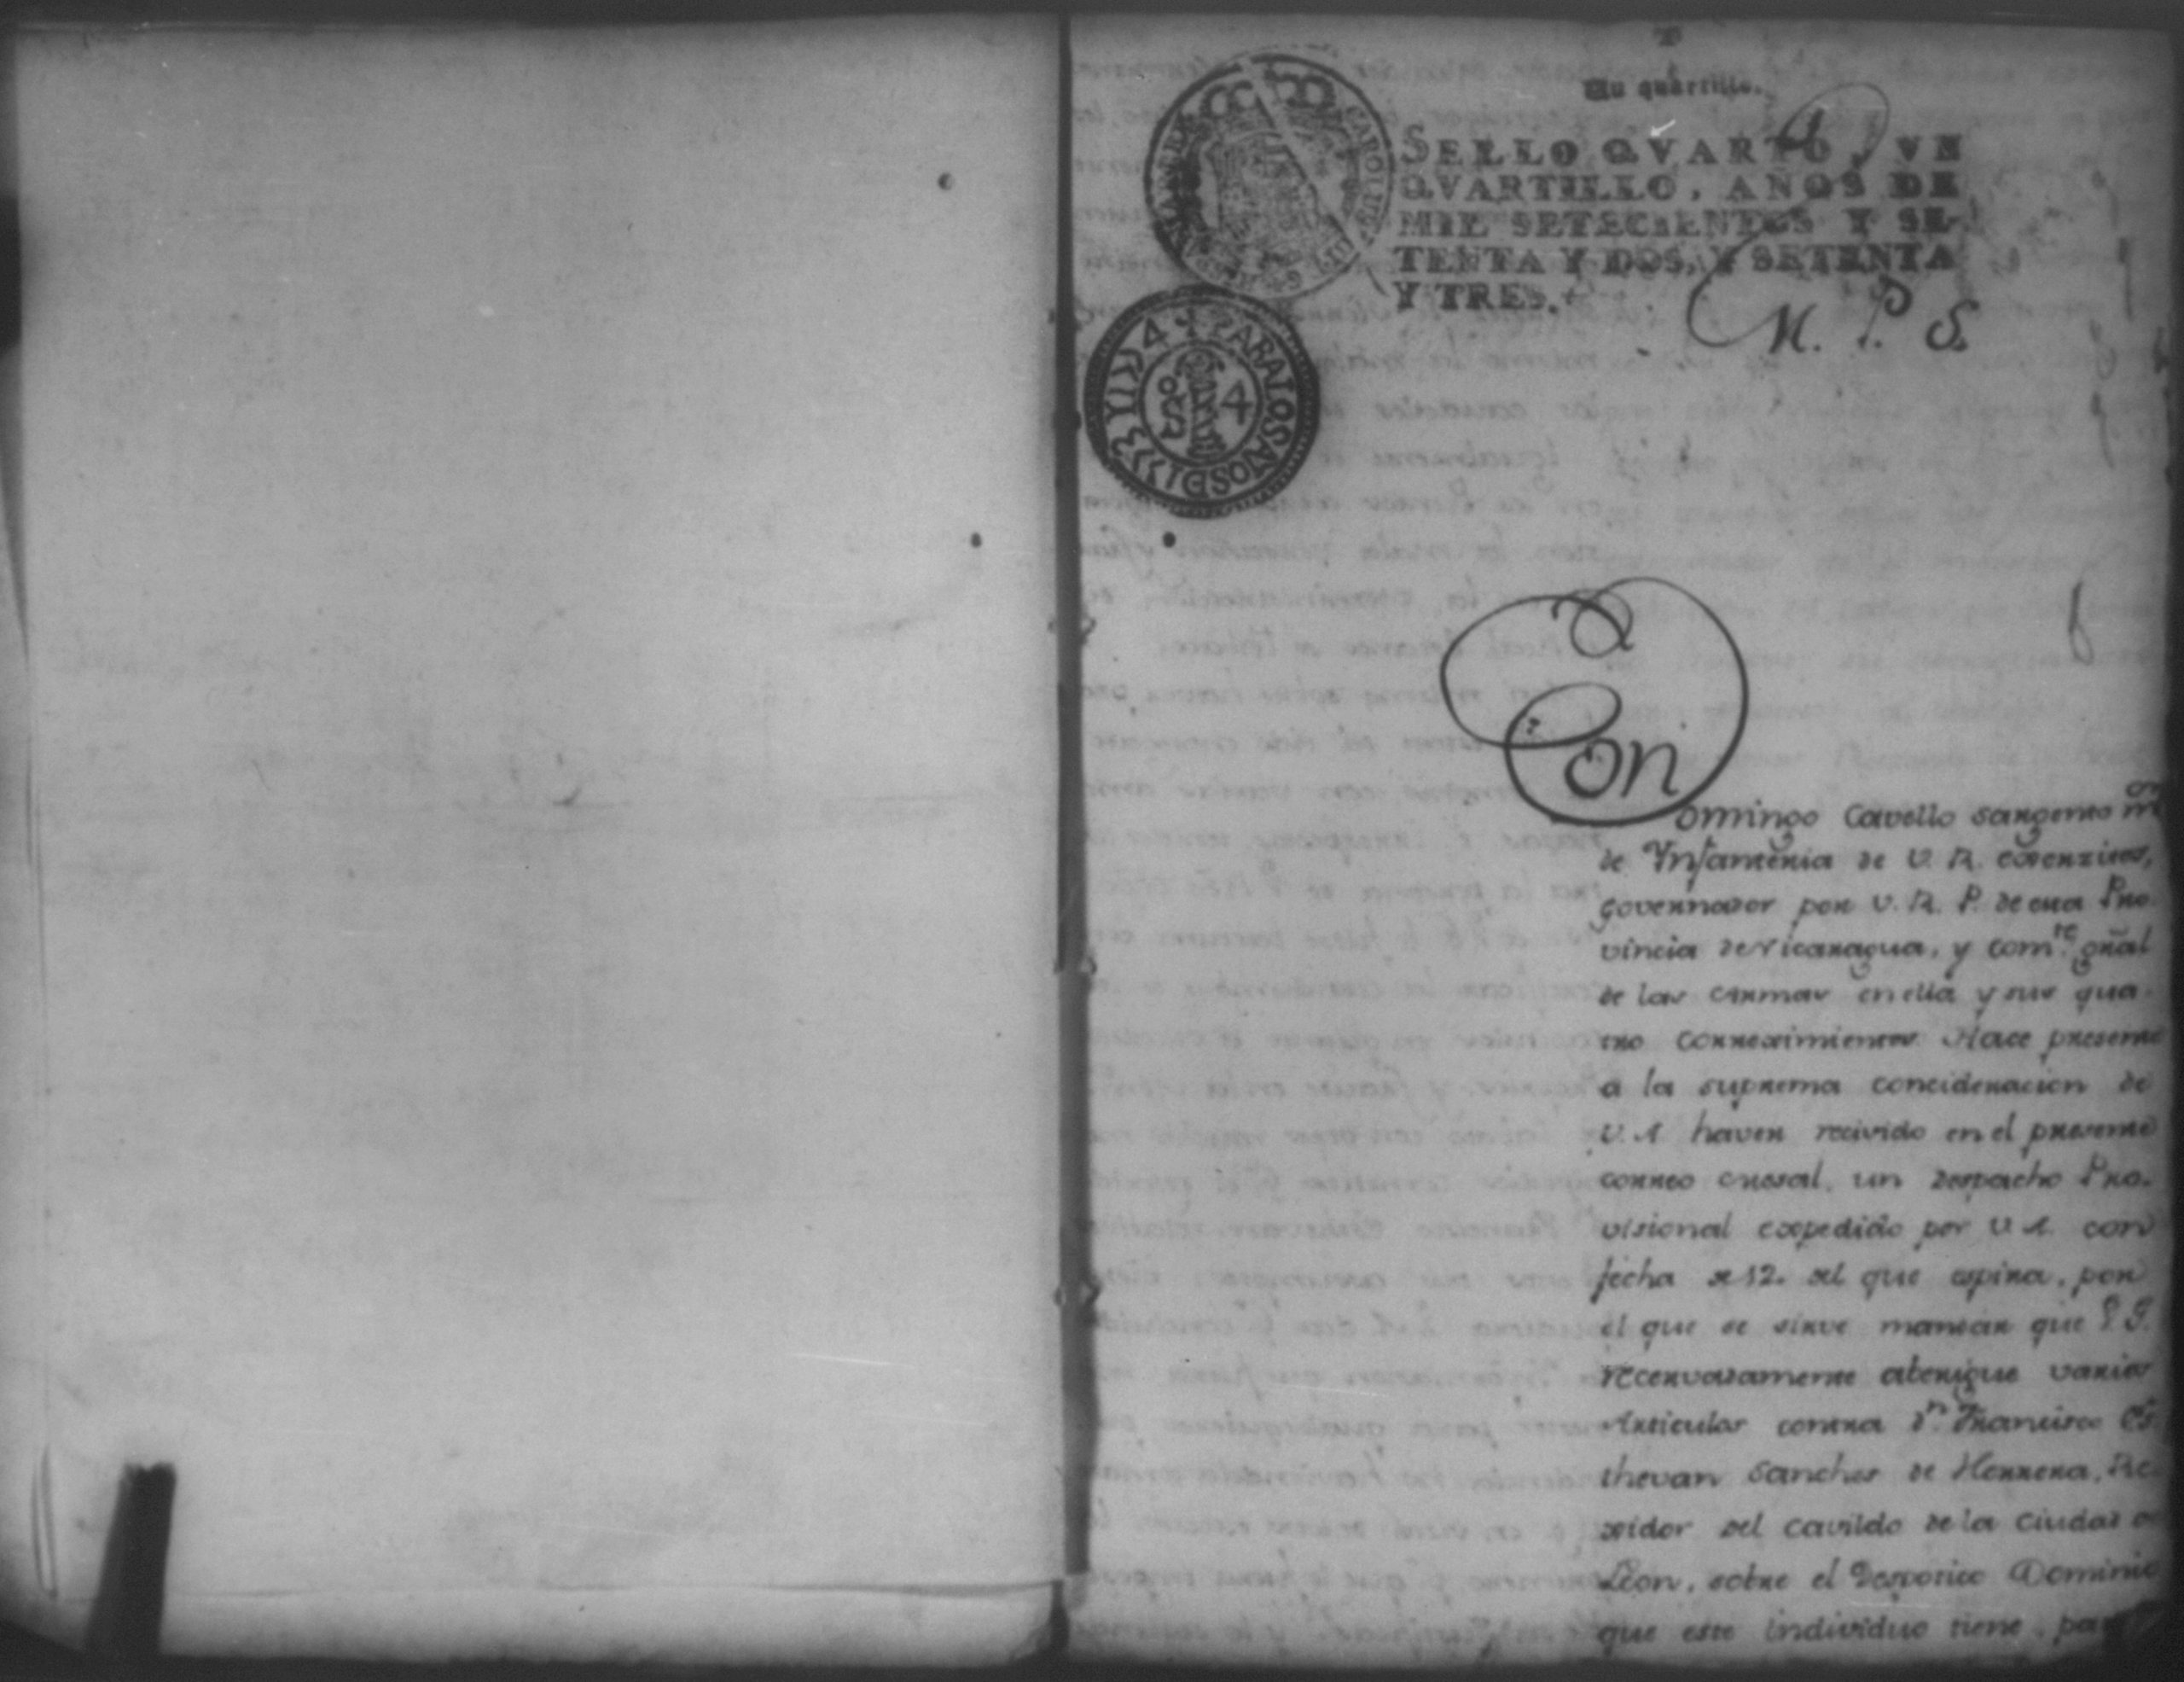 Un quartillo.
SELLO QVARTO, VN
QVARTILLO, AÑOS DE
MIL SETECIENTOS Y SE-
TENTA Y DOS, Y SETENTA
Y TRES.
CAROLUS III
PARA LOS AÑOS D 1774 Y 1775
M. P. S.
Don
Domingo Cavello Sargento mor
de Ynfanteria de V. R. exercitos,
governador por V. R. P. de esta Pro-
vincia de Nicaragua, y comte. gñal
de las Armas en ella y sus qua-
tro corregimientos. Hace presente
a la suprema concideracion de
V. A haver recivido en el presente
correo mesal, un Despacho Pro-
visional expedido por V. A. con
fecha de 12. del que espira, por
el que se sirve mandar que
recervadamente aberigue varios
Articulos contra Dn. Francisco Es
thevan Sanches de Herrera, Re-
xidor del Cavildo de la Ciudad de
Leon, sobre el Despotico Dominio
que este individuo tiene, para